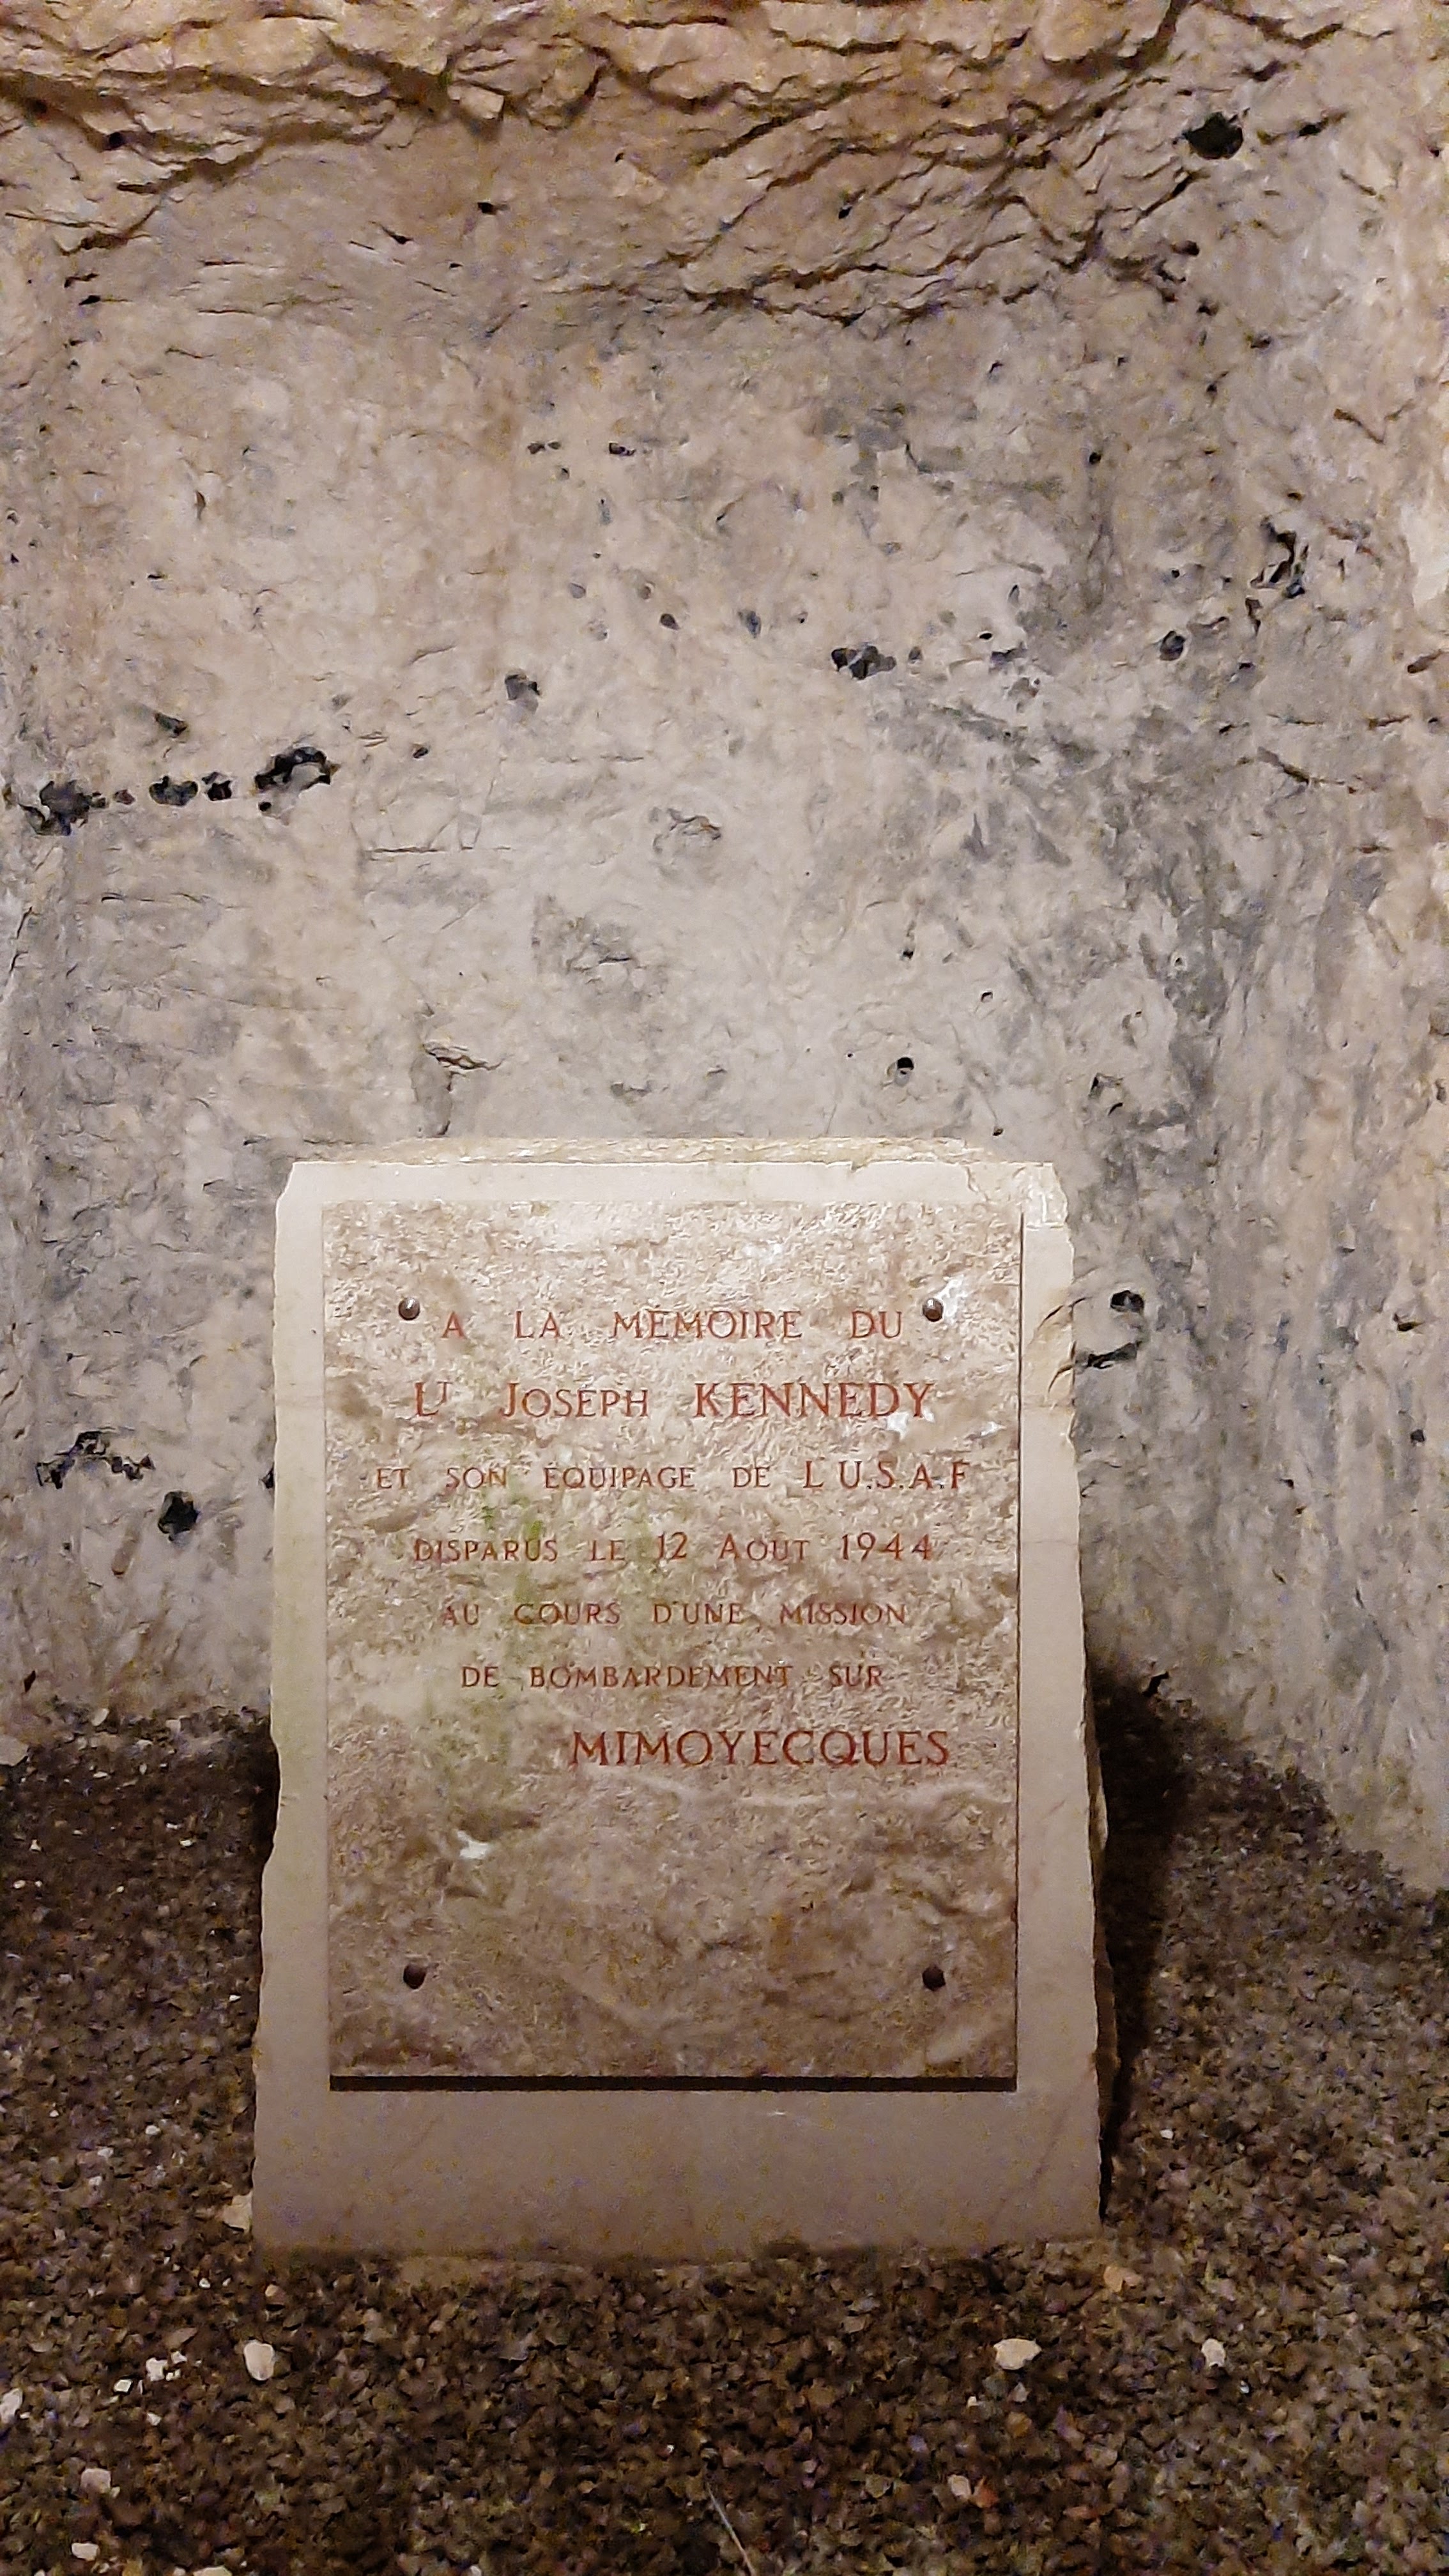 A LA MÉMOIRE DU
Lt JOSEPH KENNEDY
ET SON EQUIPAGE DE L'U.S.A.F
DISPARUS LE 12 AOUT 1944
AU COURS D'UNE MISSION
DE BOMBARDEMENT SUR
MIMOYECQUES